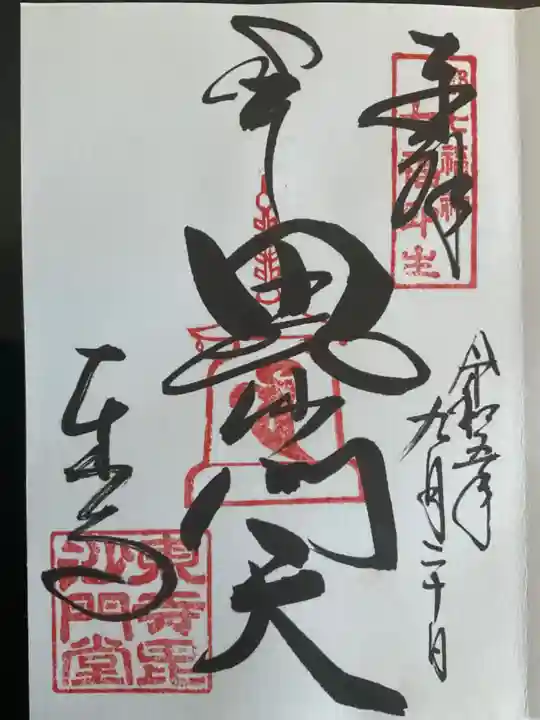 奉拝
都七福神
令和五年
九月二十日
毘沙門天
東寺
東寺毘
沙門堂